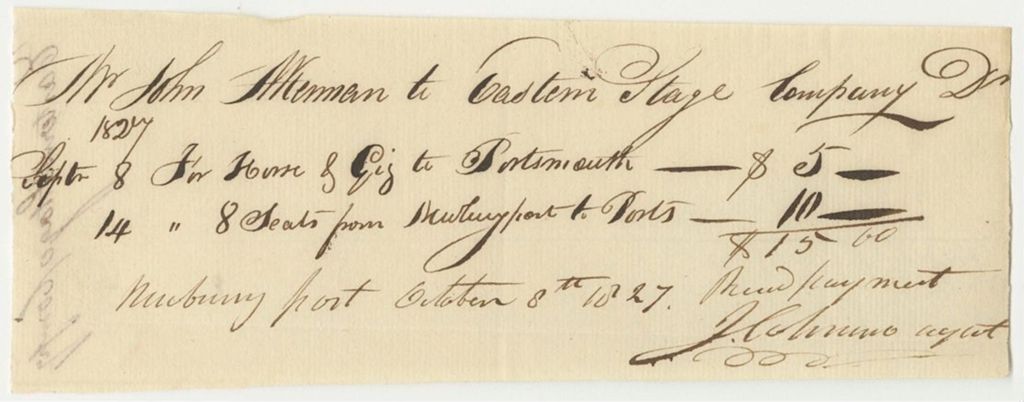 Mr John Akerman to Eastern Stage Company Dr
1827
Septr 8 For Horse & Gig to Portsmouth — $ 5 —
14 " 8 Seats from Newburyport to Ports — 10 —
$ 15 00
Newbury port October 8th 1827. Recd payment
J. Coleman agent